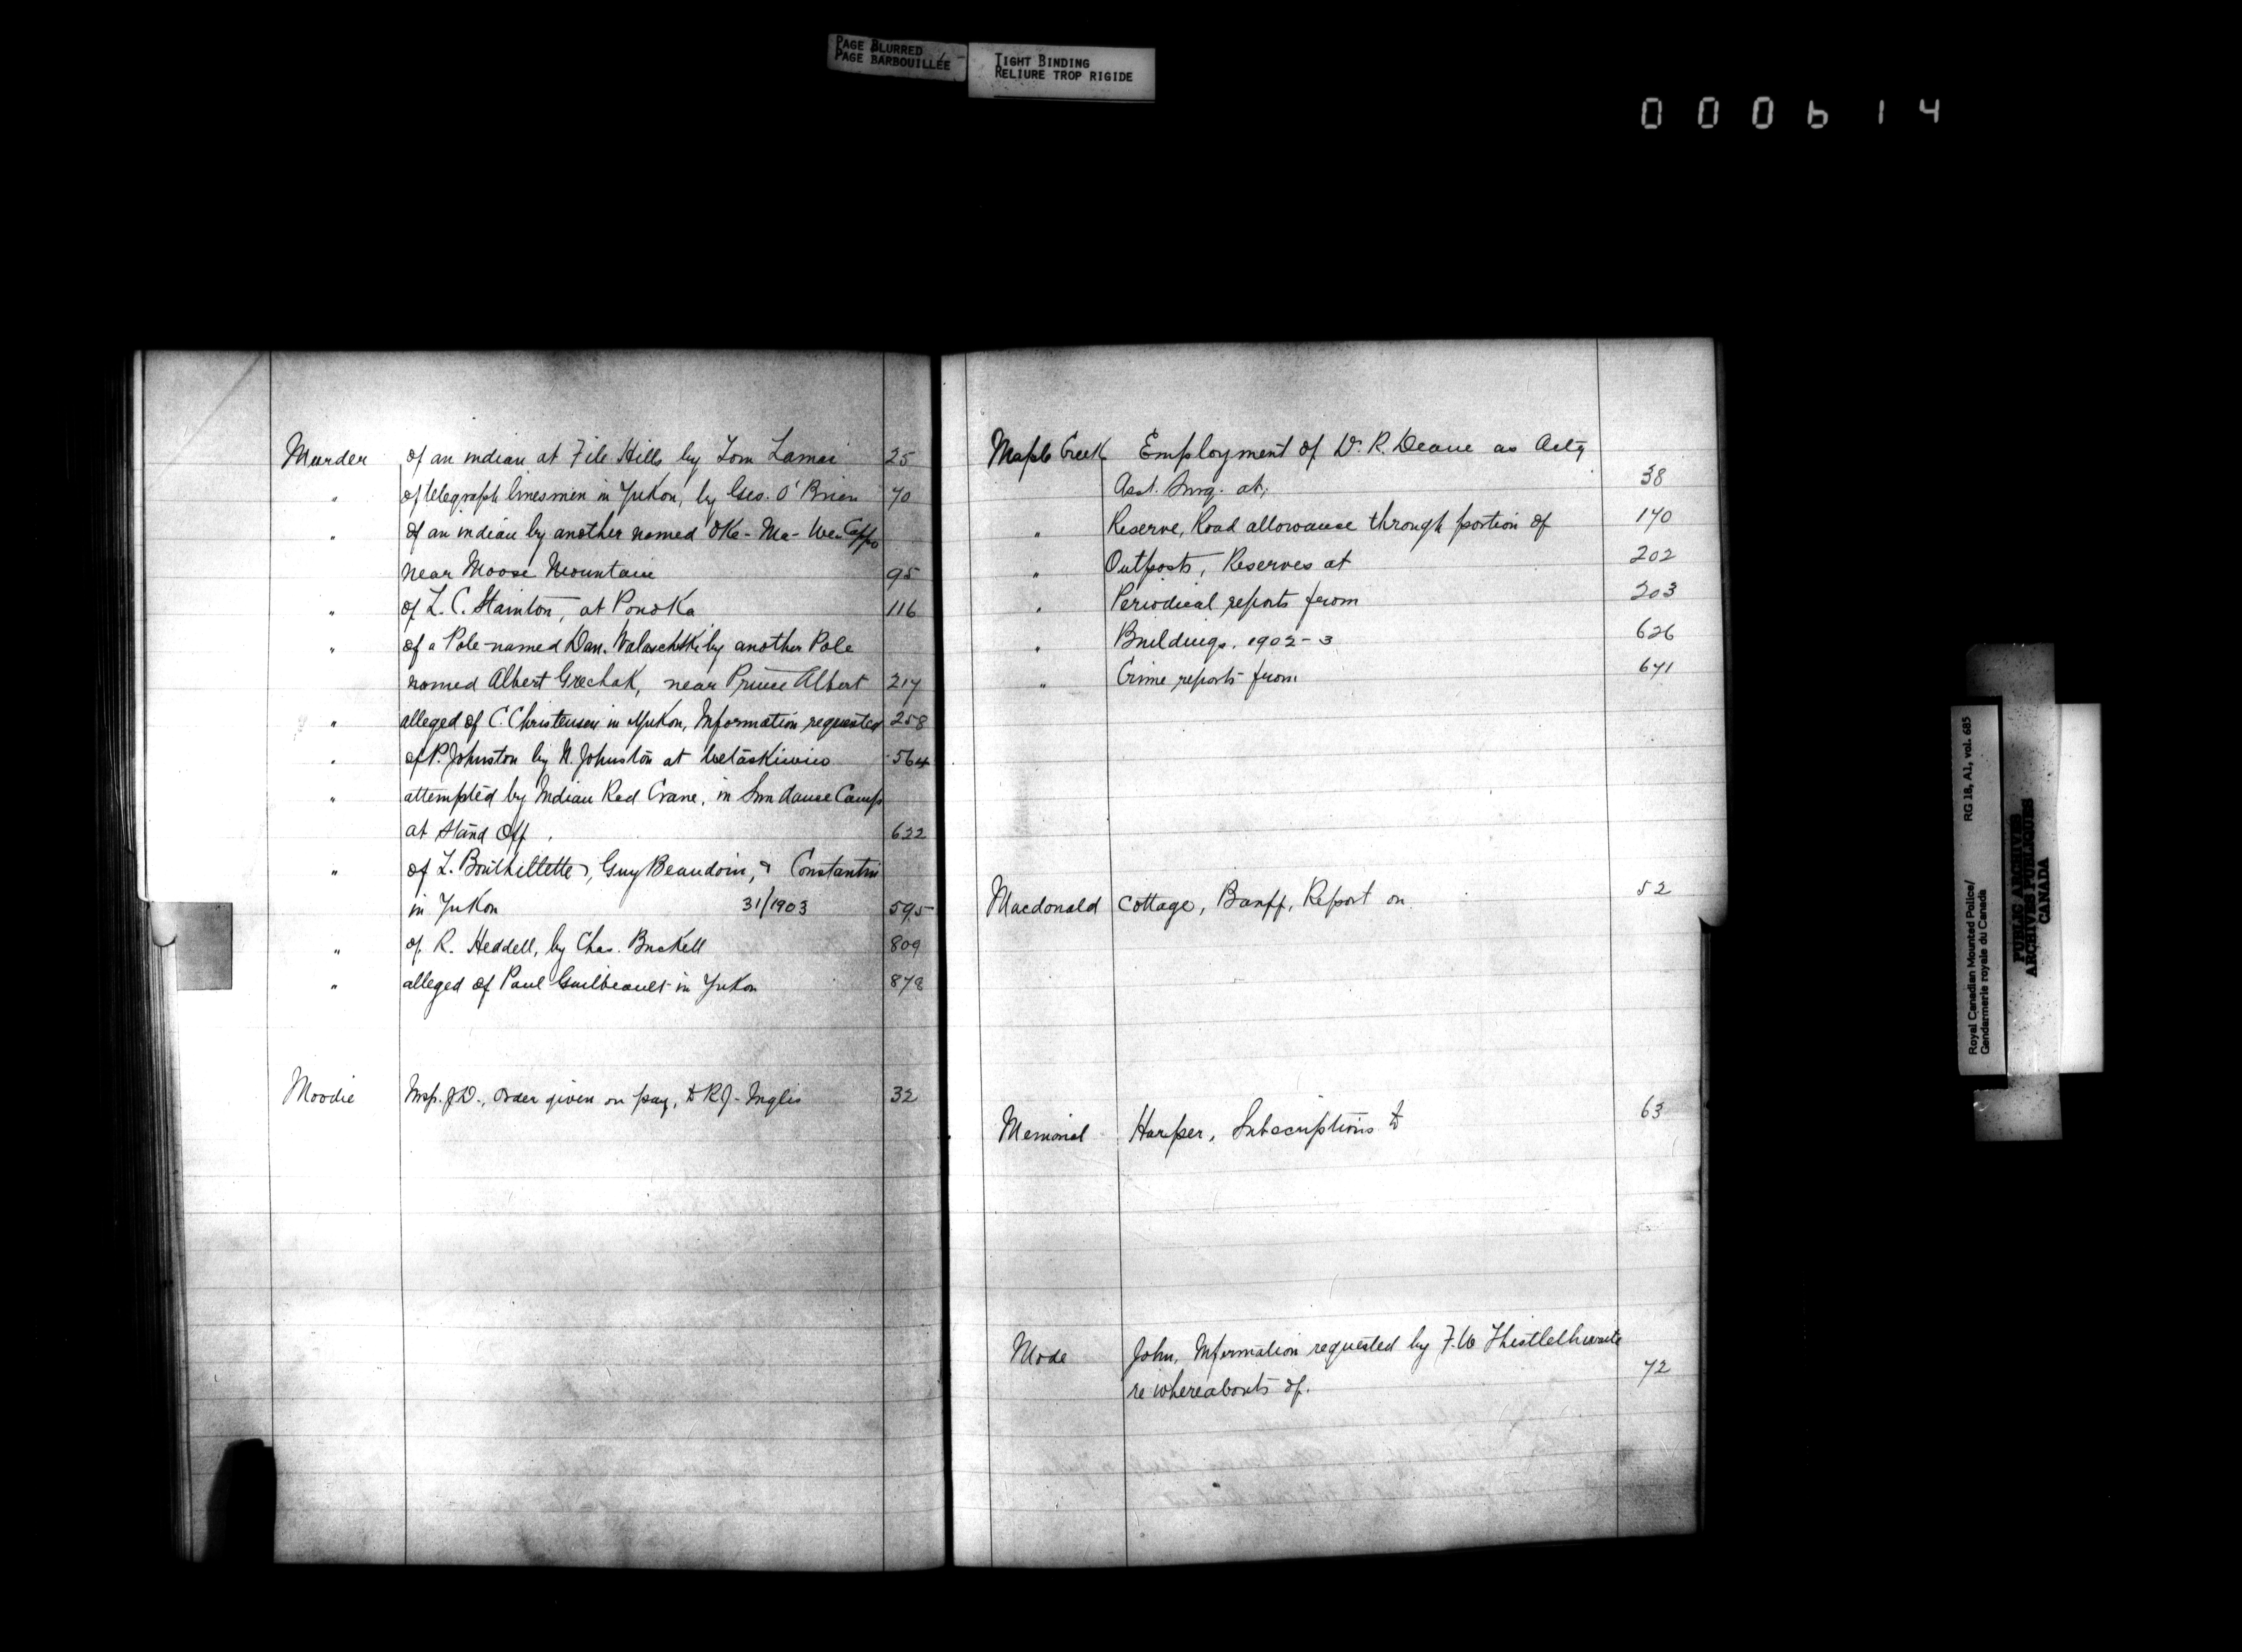 PAGE BLURRED
PAGE BARBOUILLÉE
TIGHT BINDING
RELIURE TROP RIGIDE
000614
Murder of an indian at File Hills by Tom Lamac 25
" of telegraph linesmen in Yukon, by Geo. O'Brien 70
" of an indian by another named Oke-Ma-We-Cappo
near Moose Mountain 95
" of L. C. Stainton, at Ponoka 116
" of a Pole named Dan. by another Pole
named Albert Grechak, near Prince Albert 217
" alleged of C. Christensen in Yukon, Information requested 258
" of P. Johnston by N. Johnston at Wetaskiwin 564
" attempted by Indian Red Crane, in Sun dance Camp
at Stand Off. 622
" of L. Bouthillette, Guy Beaudoin, & Constantin
in Yukon 31/1903 595
" of R. Heddell, by Chas. Buckell 809
" alleged of Paul Guilbeault in Yukon 878
Moodie Insp. J.D., Order given on pay, to R.J. Inglis 32
Maple Creek Employment of D. R. Deane as Actg
Asst. Surg. at, 38
" Reserve, Road allowance through portion of 170
" Outposts, Reserves at 202
" Periodical reports from 203
" Buildings, 1902-3 626
" Crime reports from 671
Macdonald Cottage, Banff, Report on 52
Memorial Harper, Subscriptions to 63
Mode John, Information requested by F.W Thistlethwaite
re whereabouts of. 72
Royal Canadian Mounted Police/ RG 18, A1, vol. 685
Gendarmerie royale du Canada
PUBLIC ARCHIVES
ARCHIVES PUBLIQUES
CANADA